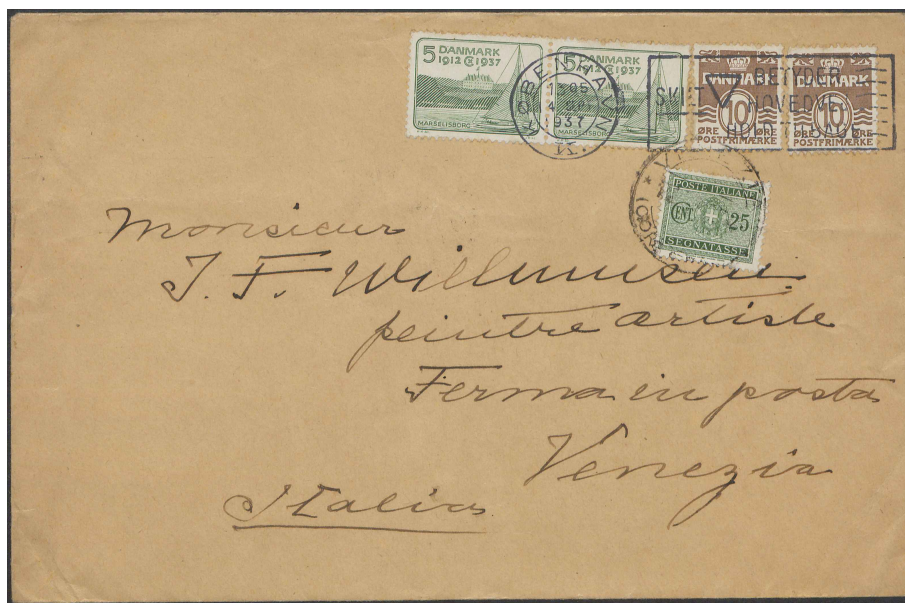 5 DANMARK
1912 CX 1937
MARSELISBORG
5 DANMARK
1912 CX 1937
MARSELISBORG
KØBENHAVN
1937
K.
DANMARK
10
ØRE ØRE
POSTFRIMÆRKE
DANMARK
10
ØRE ØRE
POSTFRIMÆRKE
BETYDER
HOVEDVEJ
POSTE ITALIANE
CENT. 25
SEGNATASSE
Monsieur
J. F. Willumsen
peintre artiste
Ferma in posta
Venezia
Italia